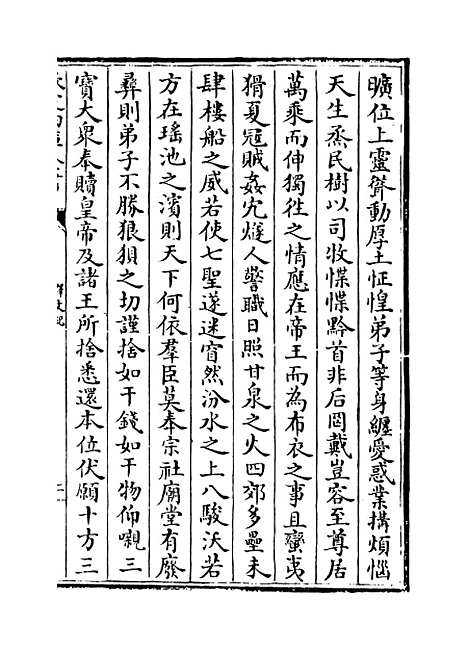 曠位上靈聳動厚土怔惶弟子等身纒愛惑業搆煩惱
天生烝民樹以司牧惵惵黔首非后罔戴豈容至尊居
萬乗而伸獨徃之情應在帝王而為布衣之事且蠻夷
猾夏冦賊姦宄燧人警職日照甘泉之火四郊多壘未
肆樓船之威若使七聖遂迷窅然汾水之上八駿沃若
方在瑤池之濵則天下何依羣臣莫奉宗社廟堂有廢
彞則弟子不勝狼狽之切謹捨如干錢如干物仰嚫三
寳大衆奉贖皇帝及諸王所捨悉還本位伏願十方三
釋文紀